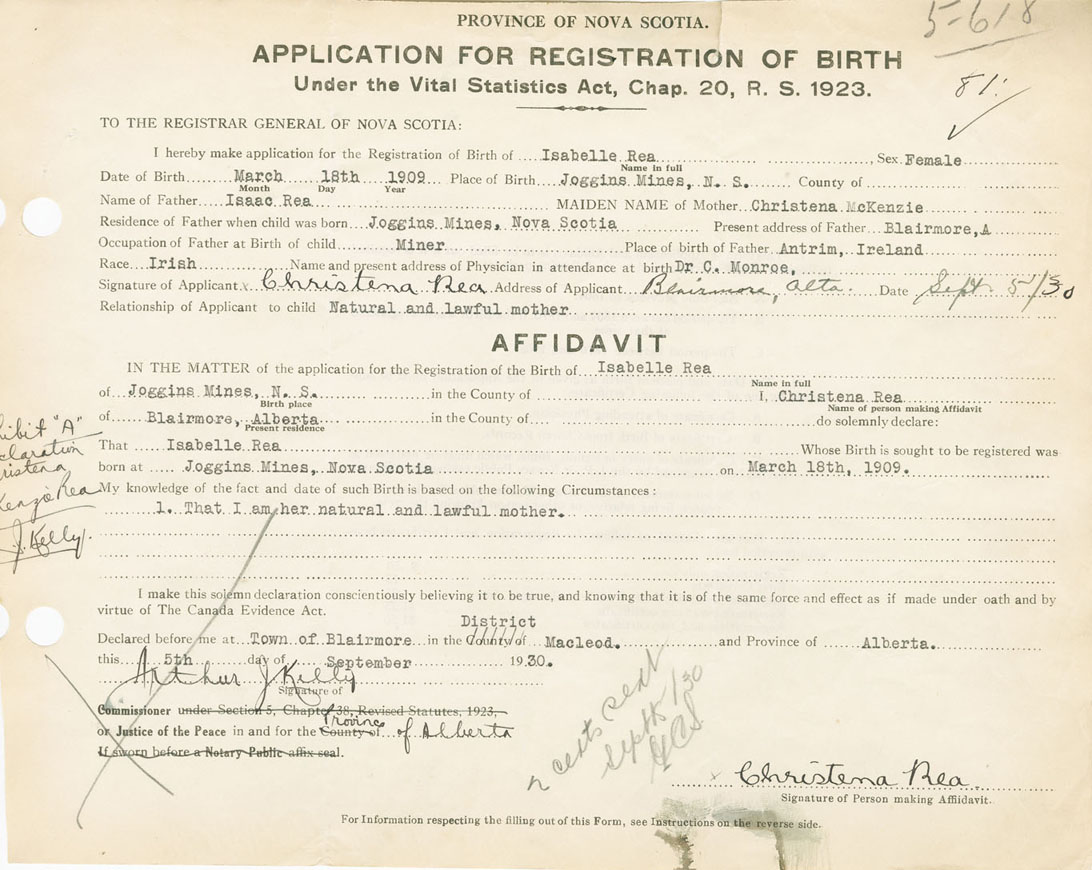 PROVINCE OF NOVA SCOTIA.
5-618
APPLICATION FOR REGISTRATION OF BIRTH
Under the Vital Statistics Act, Chap. 20, R. S. 1923.
81.
TO THE REGISTRAR GENERAL OF NOVA SCOTIA:
I hereby make application for the Registration of Birth of Isabelle Rea, Sex Female
Name in full
Date of Birth March 18th 1909 Place of Birth Joggins Mines, N. S. County of
Month Day Year
Name of Father Isaac Rea MAIDEN NAME of Mother Christena McKenzie
Residence of Father when child was born Joggins Mines, Nova Scotia Present address of Father Blairmore, A
Occupation of Father at Birth of child Miner Place of birth of Father Antrim, Ireland
Race Irish Name and present address of Physician in attendance at birth Dr. C. Monroe,
Signature of Applicant x Christena Rea Address of Applicant Blairmore, Alta. Date Sept. 5/30
Relationship of Applicant to child Natural and lawful mother
AFFIDAVIT
IN THE MATTER of the application for the Registration of the Birth of Isabelle Rea
Name in full
of Joggins Mines, N. S. in the County of I, Christena Rea
Birth place Name of person making Affidavit
of Blairmore, Alberta in the County of do solemnly declare:
Present residence
hibit "A"
That Isabelle Rea Whose Birth is sought to be registered was
claration
born at Joggins Mines, Nova Scotia on March 18th, 1909.
ristena
My knowledge of the fact and date of such Birth is based on the following Circumstances:
Kenzie Rea
1. That I am her natural and lawful mother.
J. Kelly.
I make this solemn declaration conscientiously believing it to be true, and knowing that it is of the same force and effect as if made under oath and by
virtue of The Canada Evidence Act.
District
Declared before me at Town of Blairmore in the County of Macleod. and Province of Alberta.
this 5th day of September 1930.
Arthur J Kelly
Signature of
Commissioner under Section 5, Chapter 38, Revised Statutes, 1923,
Province
or Justice of the Peace in and for the County of of Alberta
If sworn before a Notary Public affix seal.
cents sent
Sept 1/30
x Christena Rea
Signature of Person making Affidavit.
For Information respecting the filling out of this Form, see Instructions on the reverse side.